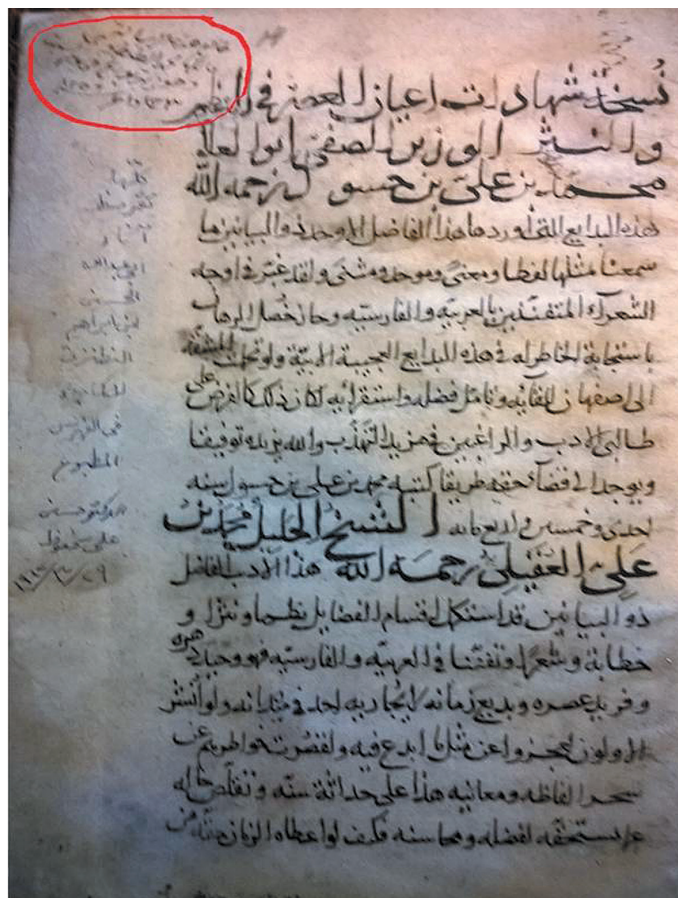 نسخة شهادات اعيان العصر في النظم
والنثر الوزير الصفي ابو العلا
محمد بن علي بن حسول رحمه الله
هذه البدايع التي اوردها هذا الفاضل الاوحد ذو البيانين ما
سمعنا مثلها لفظا ومعنى وموحد ومثنى ولقد غبر في اوجه
الشعرآء المتفننين بالعربيه والفارسيه وحاز خصل الرهان
باستجابة الخاطر له في هذه البدايع العجيبة الابية ولو تحملت المشقة
الى اصفهان للقائه وتامل فضله واستقرائه لكان ذلك كالفرض على
طالبي الادب والراغبين في مزيد التهذب والله يزيده توفيقا
ويوجد الى قضآء حقه طريقا كتبه محمد بن علي بن حسول سنه
احدى وخمسين واربع مائه الشيخ الجليل محمد بن
علي العقيلي رحمه الله هذا الاديب الفاضل
ذو البيانين قد استكمل اقسام الفضايل نظما ونثرا و
خطابة وشعرا وتفننا في العربيه والفارسيه فهو وحيد دهره
وفريد عصره وبديع زمانه لا يجاريه احد في ميدانه ولو انشر
الاولون لعجزوا عن مثل ما ابدع فيه ولقصرت خواطرهم عن
سحر الفاظه ومعانيه هذا على حداثة سنه وتقلص حاله
عما يستحقه لفضله ومحاسنه فكيف لو اعطاه الزمان منه من
كتبها
ابي عبدالله
الحسين
ابن ابراهيم
النطنزي
في الفهرس
المطبوع
الدكتور حسين
علي محفوظ